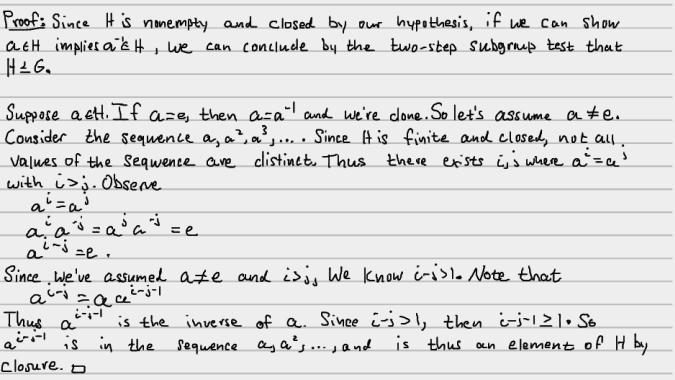 Proof: Since H is nonempty and closed by our hypothesis, if we can show
a∈H implies a⁻¹∈H, we can conclude by the two-step subgroup test that
H≤G.
Suppose a∈H. If a=e, then a=a⁻¹ and we're done. So let's assume a≠e.
Consider the sequence a, a², a³, .... Since H is finite and closed, not all
values of the sequence are distinct. Thus there exists i,j where aⁱ=aʲ
with i>j. Observe
aⁱ=aʲ
aⁱa⁻ʲ=aʲa⁻ʲ=e
aⁱ⁻ʲ=e.
Since we've assumed a≠e and i>j, we know i-j>1. Note that
aⁱ⁻ʲ=a aⁱ⁻ʲ⁻¹
Thus aⁱ⁻ʲ⁻¹ is the inverse of a. Since i-j>1, then i-j-1≥1. So
aⁱ⁻ʲ⁻¹ is in the sequence a, a², ..., and is thus an element of H by
closure. □